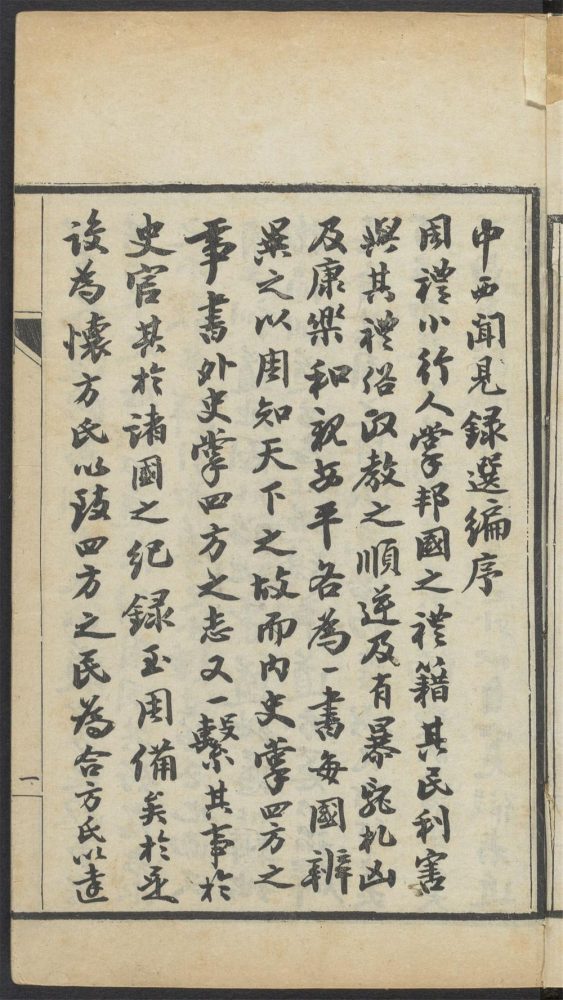 中西聞見録選編序
周禮小行人掌邦國之禮籍其民利害
與其禮俗政教之順逆及有暴亂札凶
及康樂和親安平各為一書每國辨
異之以周知天下之故而內史掌四方之
事書外史掌四方之志又一繫其事於
史官其於諸國之紀録至周備矣於是
設為懷方氏以致四方之民為合方氏以達
一